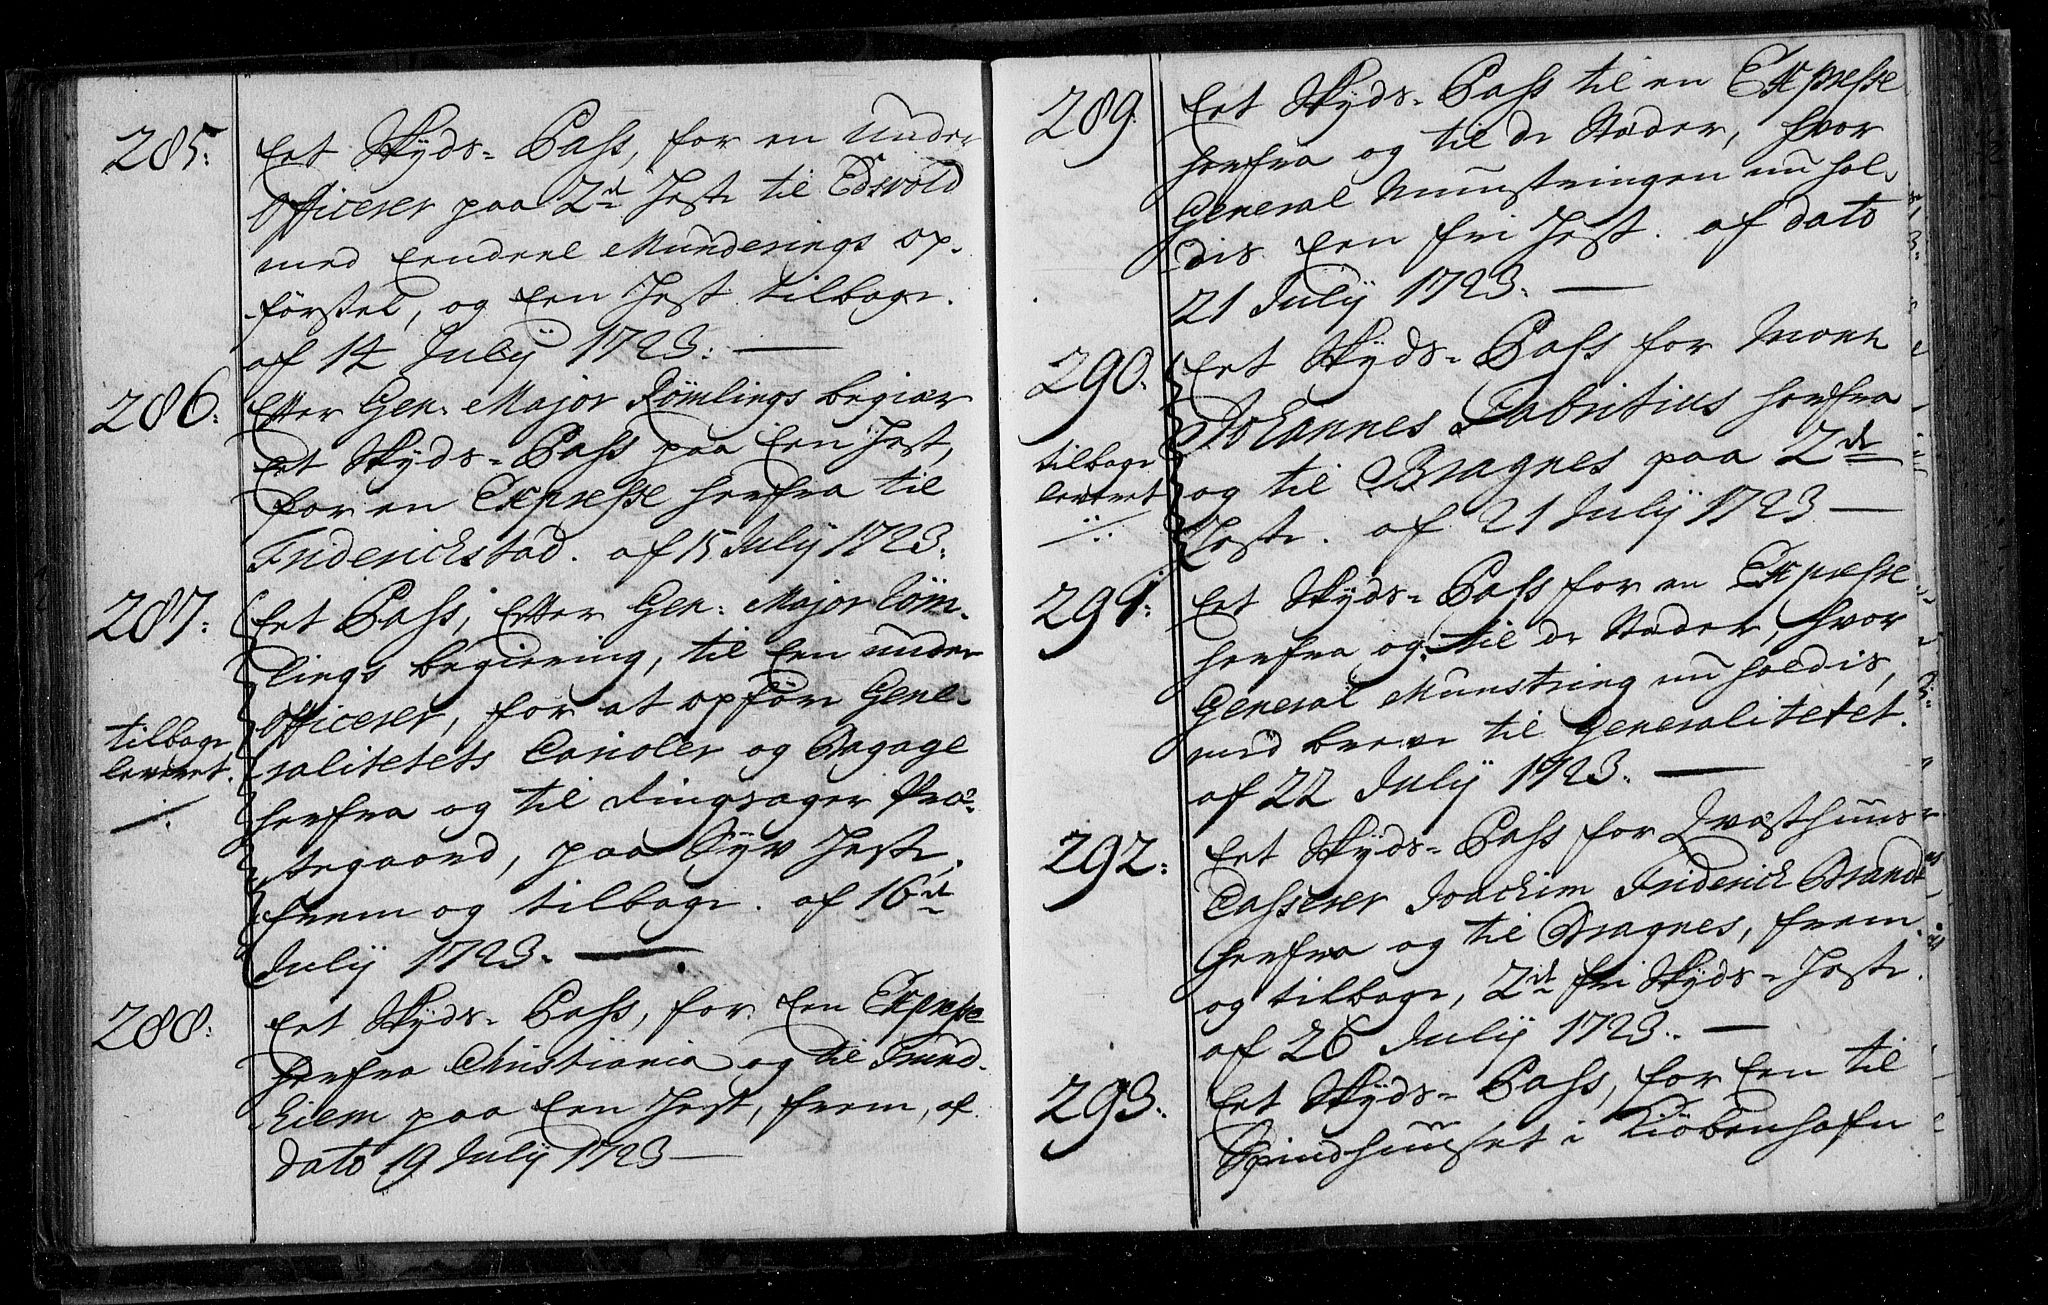 285:
Eet Skÿds-Pass, for en under
Officerer paa 2de Heste til Edsvold
med Eendeel Munderings op-
förstel, og Een Hest tilbage.
af 14 Julÿ 1723:
286:
Efter Gen: Major Römlings begiær
Eet Skÿds-Pass paa Een Hest,
for en Expresse herfra til
Friderichstad. af 15 Julÿ 1723:
287:
Eet Pass, Efter Gen: Major Röm-
lings begiering, til Een under
Officerer, for at opföre Gene-
ralitetets Carioler og Bagage
herfra og til Ringsager Præ-
stegaard, paa Sÿv Heste,
frem og tilbage. af 16de
Julÿ 1723.
tilbage
leveret.
288:
Eet Skÿds-Pass, for Een Expresse
herfra Christiania og til Trund-
hiem paa Een Hest, frem, af
dato 19 Julÿ 1723
289
Eet Skÿds-Pass til en Expresse
herfra og til de Stæder, hvor
General Munstringen nu hol-
dis Een fri Hest. af dato
21 Julÿ 1723.
290:
Eet Skÿds-Pass for Monr
Johannes Fabritius herfra
og til Bragnes paa 2de
Heste. af 21 Julÿ 1723
tilbage
leveret
291:
Eet Skÿds-Pass for en Expresse
herfra og til de Stæder, hvor
General Munstring nu holdis,
med breve til Generalitetet.
af 22 Julÿ 1723.
292:
Eet Skÿds-Pass for Qvæsthuus-
Casserer Joachim Friderich Brandt
herfra og til Bragnes, frem
og tilbage, 2de fri Skÿds-Heste.
af 26 Julÿ 1723.
293:
Eet Skÿds-Pass, for Een til
Spindhuuset i Kiöbenhafn